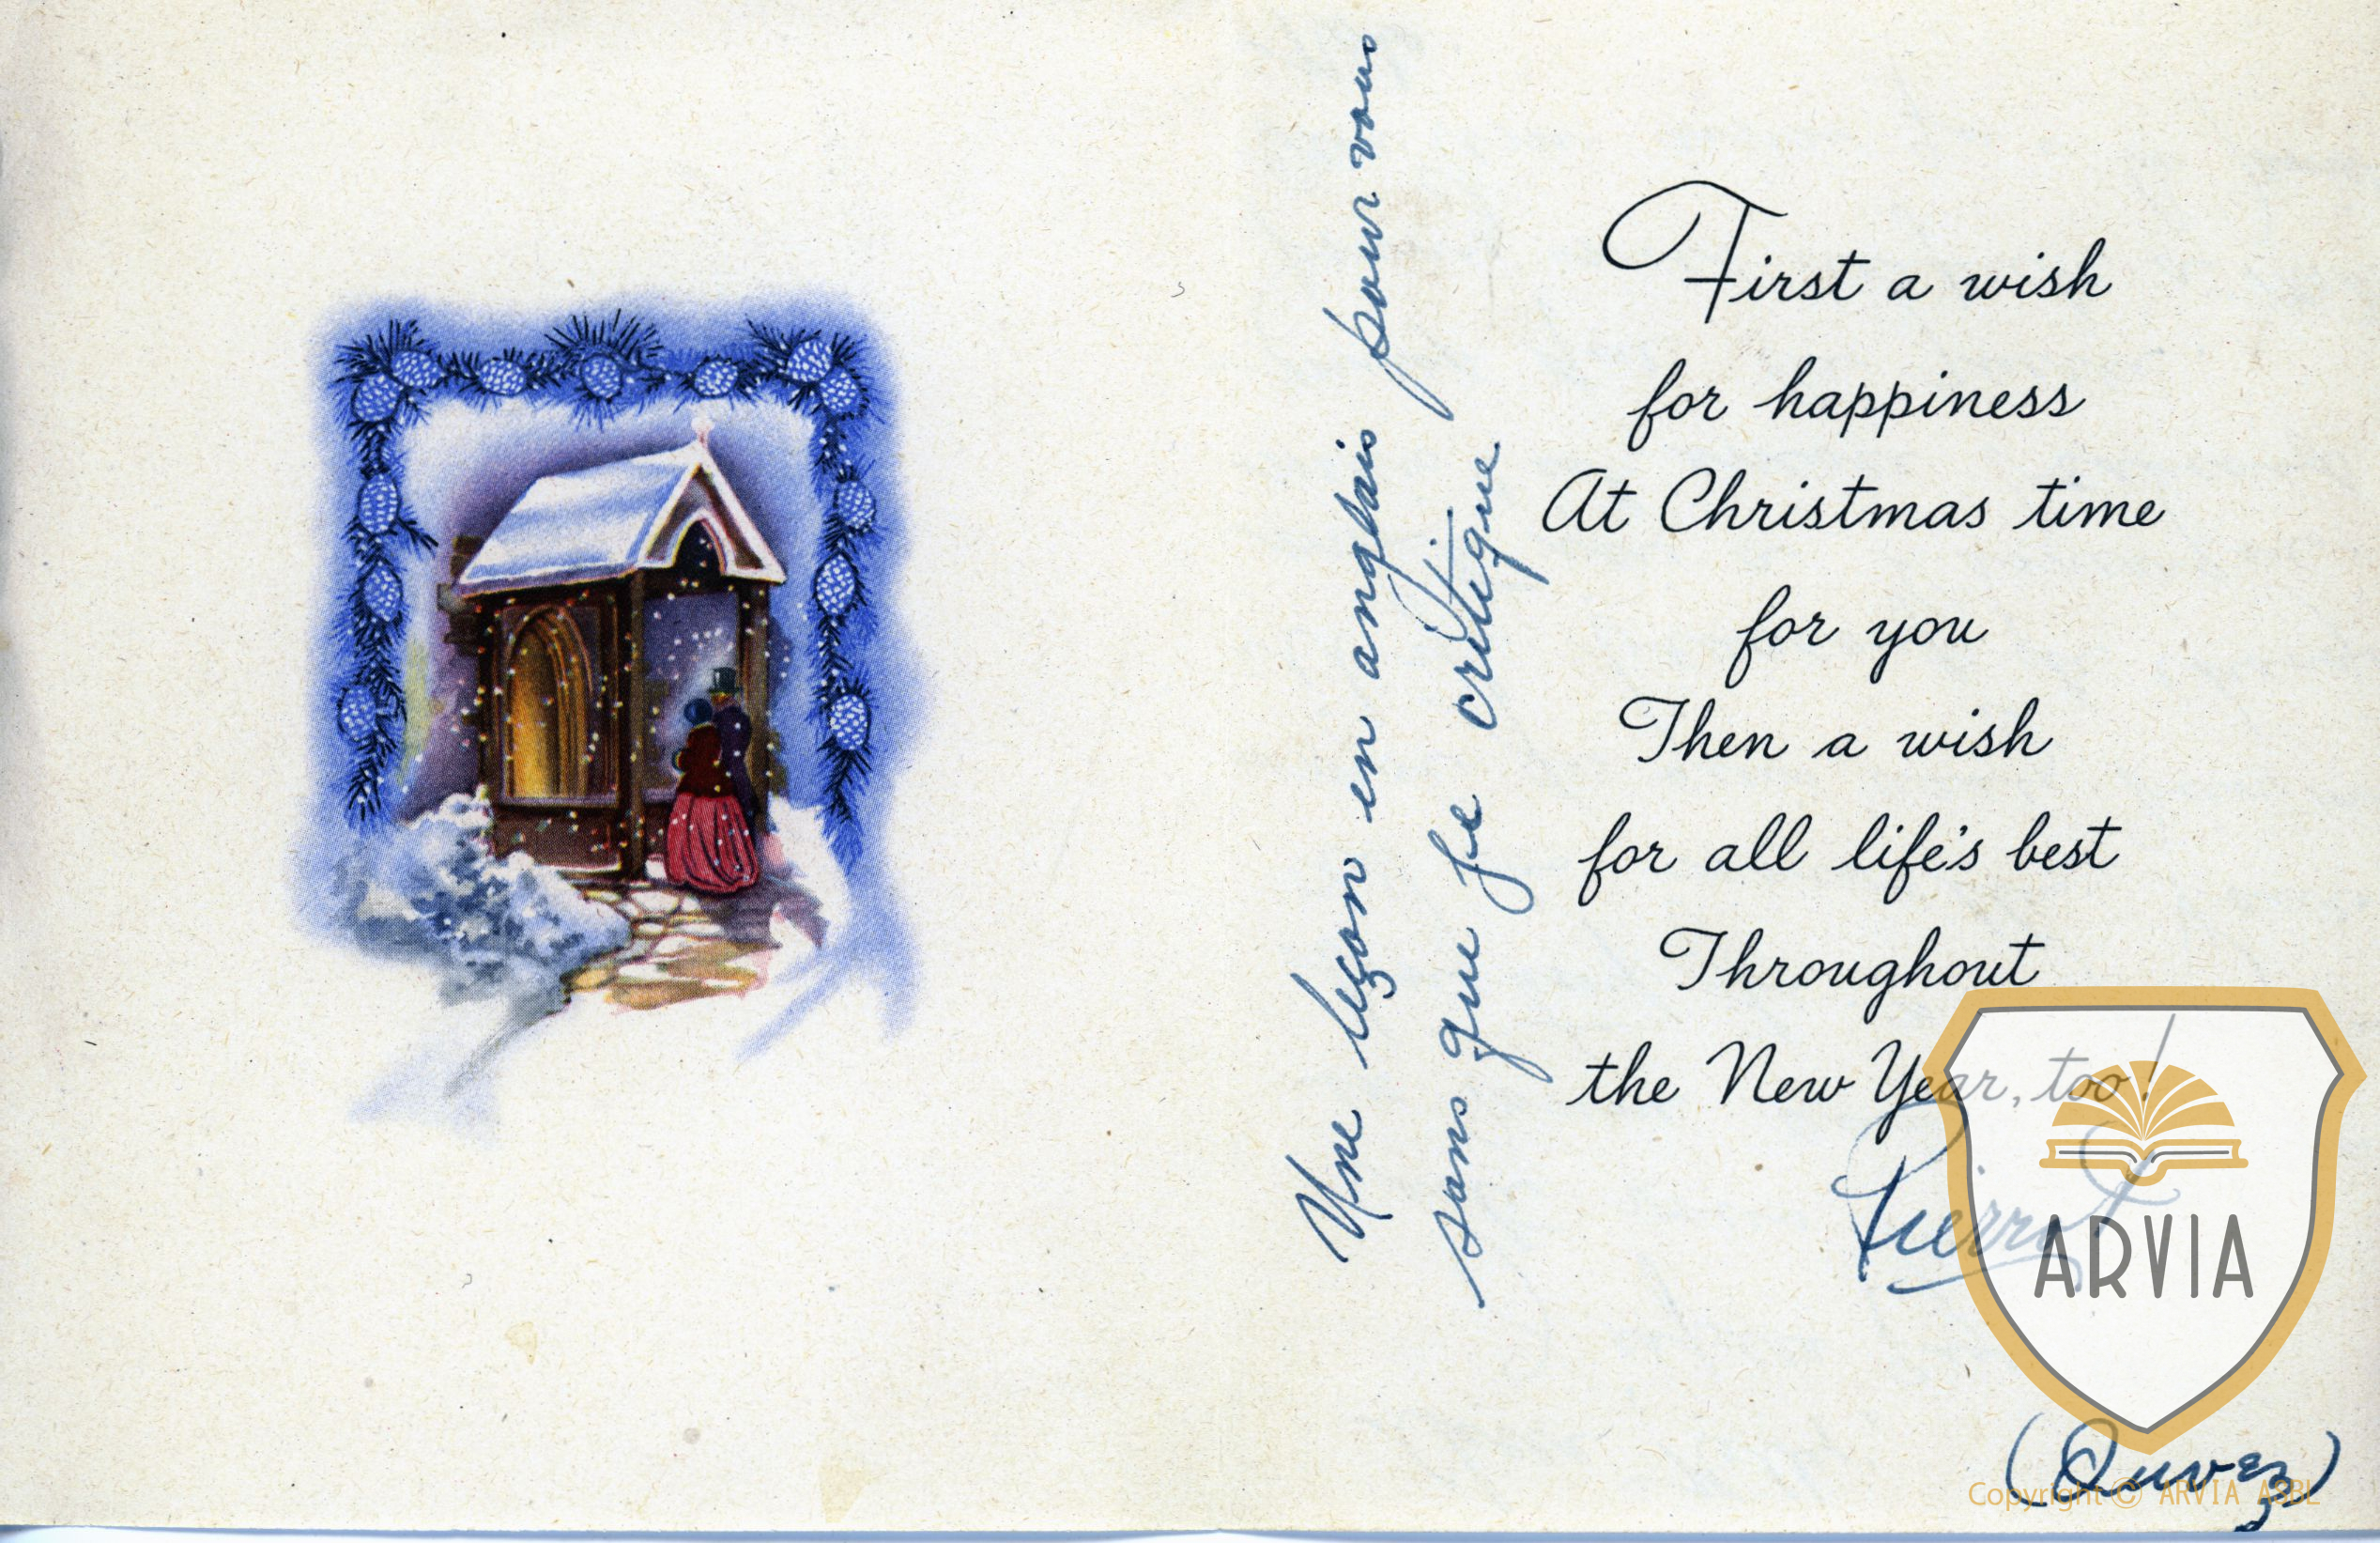 Une leçon en anglais pour vous
sans que je critique
First a wish
for happiness
At Christmas time
for you
Then a wish
for all life's best
Throughout
the New Year, too!
Pierrot
ARVIA
(Ouvez)
Copyright © ARVIA ASBL